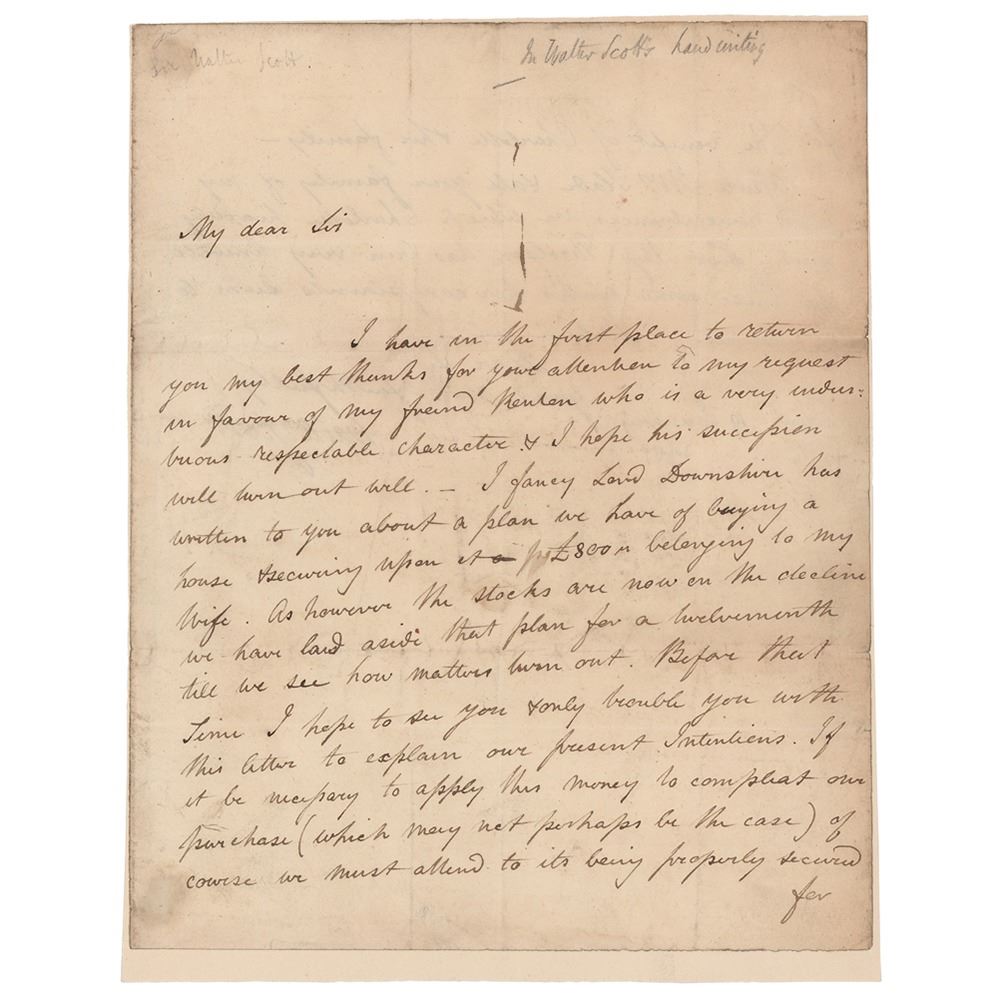 Sir Walter Scott.
In Walter Scott's handwriting
My dear Sir
I have in the first place to return
you my best thanks for your attention to my request
in favour of my freind who is a very indus=
truous respectable character & I hope his succession
will turn out well. — I fancy Lord Downshire has
written to you about a plan we have of buying a
house & securing upon it £800 belonging to my
Wife. As however the stocks are now on the decline
we have laid aside that plan for a twelvemonth
till we see how matters turn out. Before that
time I hope to see you & only trouble you with
this letter to explain our present Intentions. If
it be necessary to apply this money to compleat our
purchase (which may not perhaps be the case) of
course we must attend to its being properly secured
for